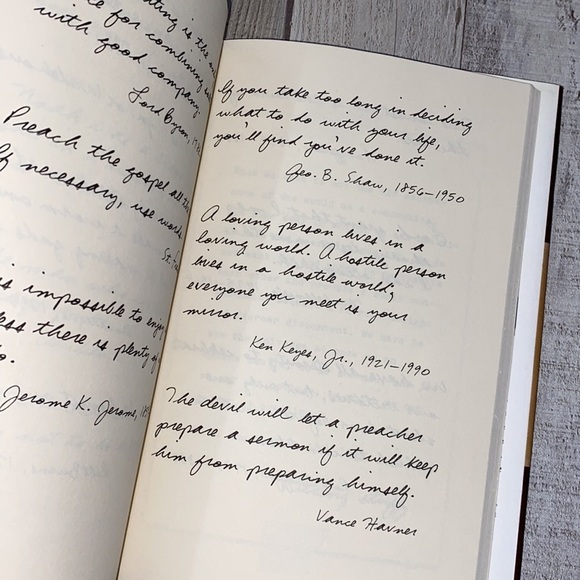 ting is the
ce for combining
with good company
Lord Byron,
Preach the gospel all
If necessary, use words
St.
s impossible to enjoy
less there is plenty of
o.
Jerome K. Jerome,
If you take too long in deciding
what to do with your life,
you'll find you've done it.
Geo. B. Shaw, 1856-1950
A loving person lives in a
loving world. A hostile person
lives in a hostile world;
everyone you meet is your
mirror.
Ken Keyes, Jr., 1921-1990
The devil will let a preacher
prepare a sermon if it will keep
him from preparing himself.
Vance Havner